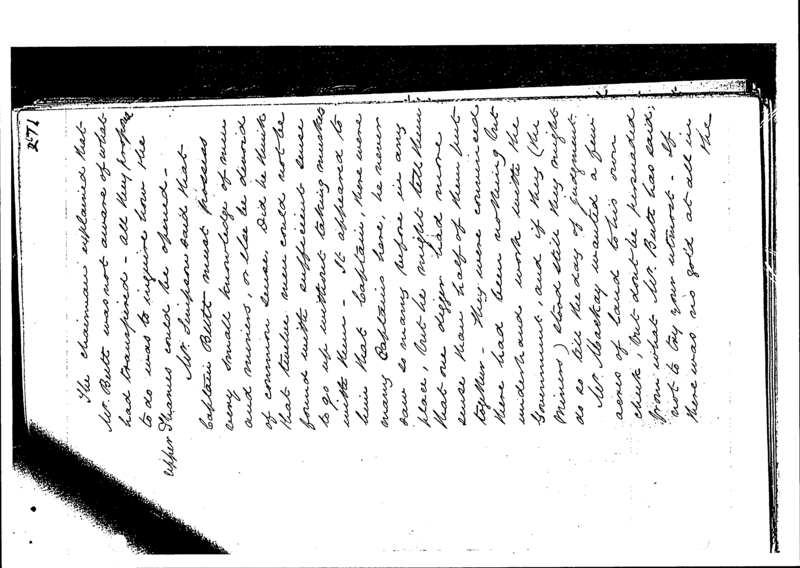 271
The chairman explained that
Mr. Butt was not aware of what
had transpired - all they propose
to do was to inquire how the
upper Thames could be opened -
Mr. Simpson said that
Captain Butt must possess
very small knowledge of men
and miners, or else be devoid
of common sense. Did he think
that twelve men could not be
found with sufficient sense
to go up without taking muskets
with them - It appeared to
him that Captain, there were
many Captains here, he never
saw so many before in any
place, but he might tell them
that one digger had more
sense than half of them put
together - They were convinced
there had been nothing but
underhand work with the
Government, and if they (the
Miners) stood still they might
do so till the day of judgment
Mr. Mackay wanted a few
acres of land to his own
cheek, but dont be persuaded
from what Mr. Butt has said;
not to try your utmost - If
there was no gold at all in
the